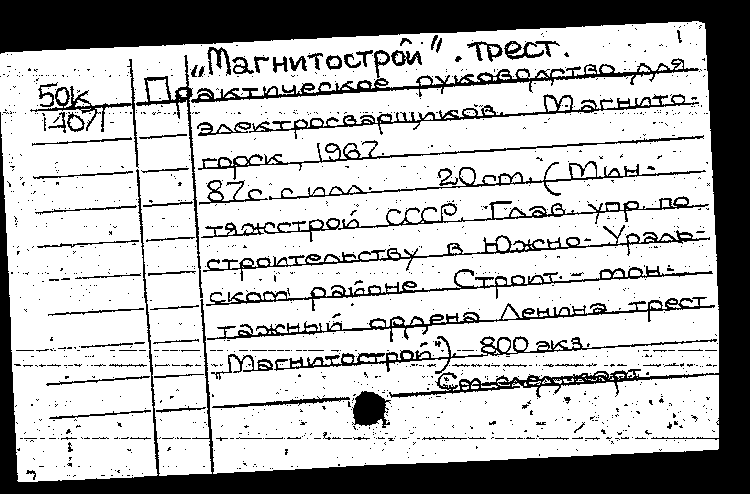 1
„Магнитострой“. трест.
50К Практическое руководство для
14071 электросварщиков. Магнито-
горск, 1967.
87с. с илл. 20 см. (Мин-
тяжстрой СССР. Глав. упр. по
строительству в Южно-Ураль-
ском районе. Строит.- мон-
тажный ордена Ленина трест
„Магнитострой“). 800 экз.
См. след. карт.